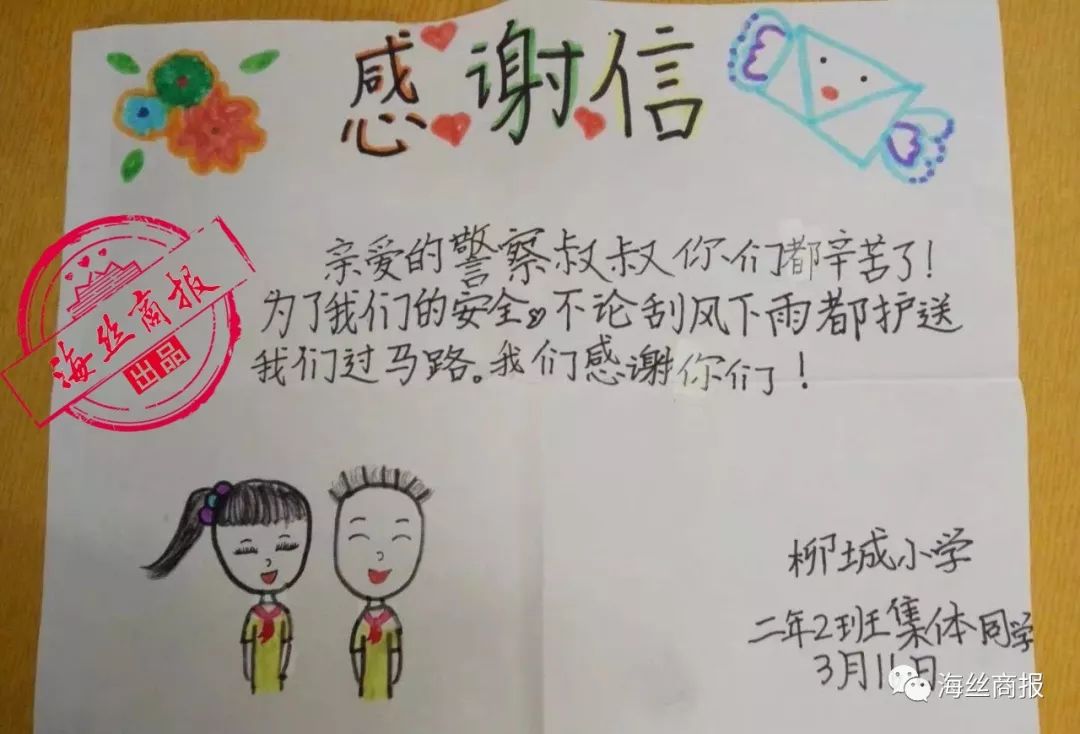 感谢信
亲爱的警察叔叔你们都辛苦了!
为了我们的安全。不论刮风下雨都护送
我们过马路。我们感谢你们!
海丝商报
出品
柳城小学
二年2班集体同学
3月11日
海丝商报